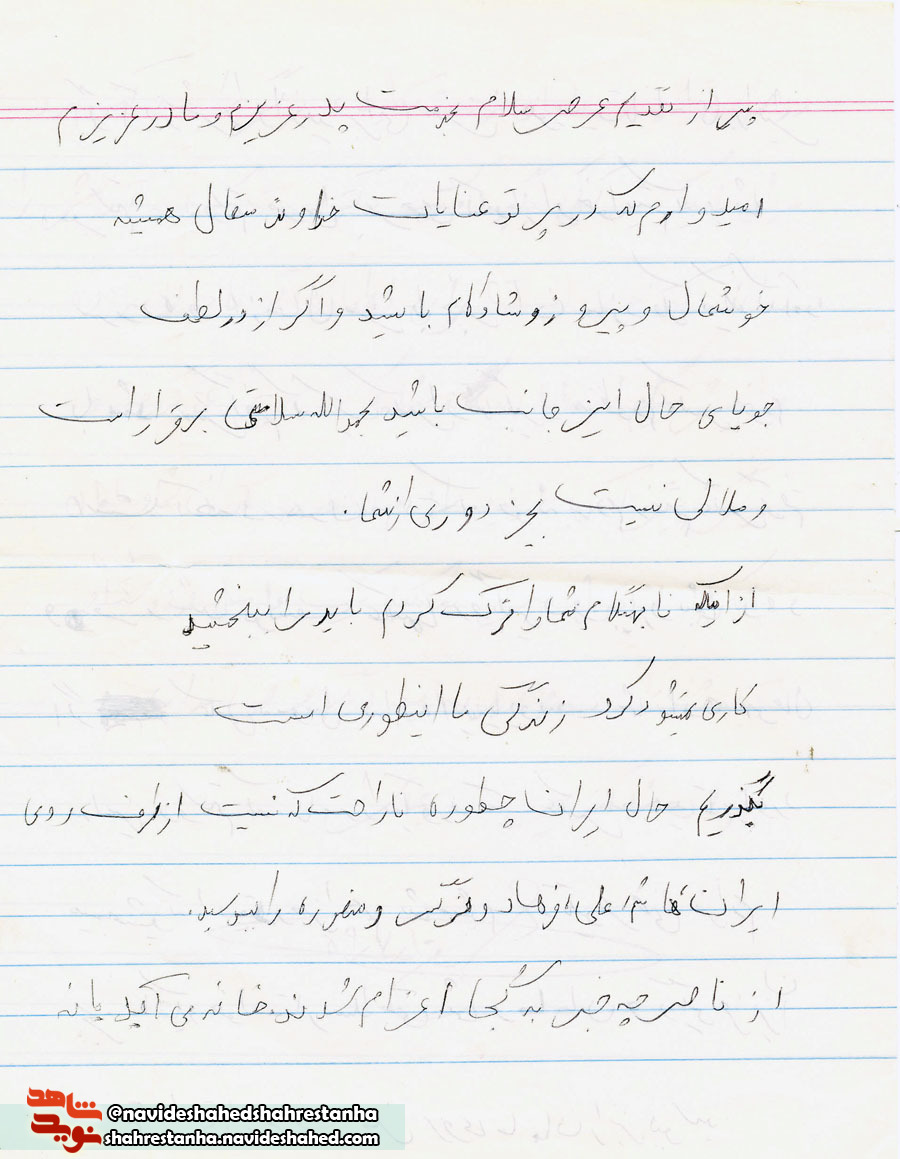 پس از تقدیم عرض سلام بخدمت پدر عزیزم و مادر عزیزم
امیدوارم که در پرتو عنایات خداوند متعال همیشه
خوشحال و پیروز و شادکام باشید و اگر از در لطف
جویای حال اینجانب باشید بحمدالله سلامتی برقرار است
و ملالی نیست بجز دوری از شما.
از اینکه نا بهنگام شما را ترک کردم باید مرا ببخشید
کاری نمیشود کرد زندگی ما اینطوری است
بگذریم حال ایران چطوره ناراحت که نیست از طرف روی
ایران، علی، فرهاد و نرگس و منصوره را ببوسید.
از ناصر چه خبر به کجا اعزام شدند، خانه می آید یا نه
شاهد
نوید
@navideshahedshahrestanha
shahrestanha.navideshahed.com